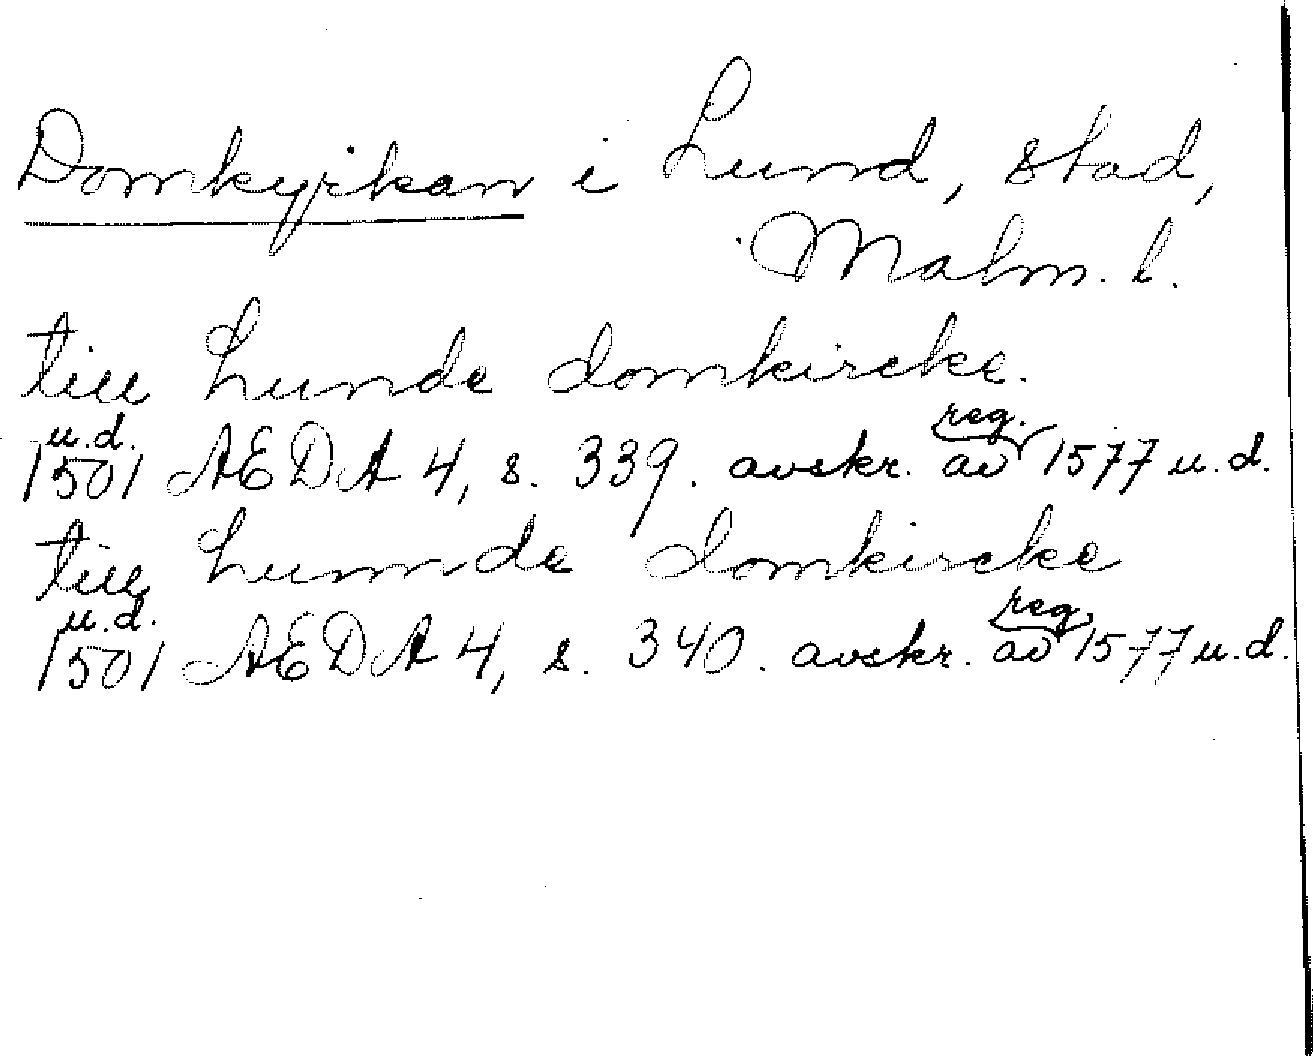 Domkyrkan i Lund, stad,
Malm. l.
till Lunde domkircke.
u.d.
1501 AEDA 4, s. 339. avskr. av reg. 1577 u.d.
till Lunnde domkircke
u.d.
1501 AEDA 4, s. 340. avskr. av reg. 1577 u.d.